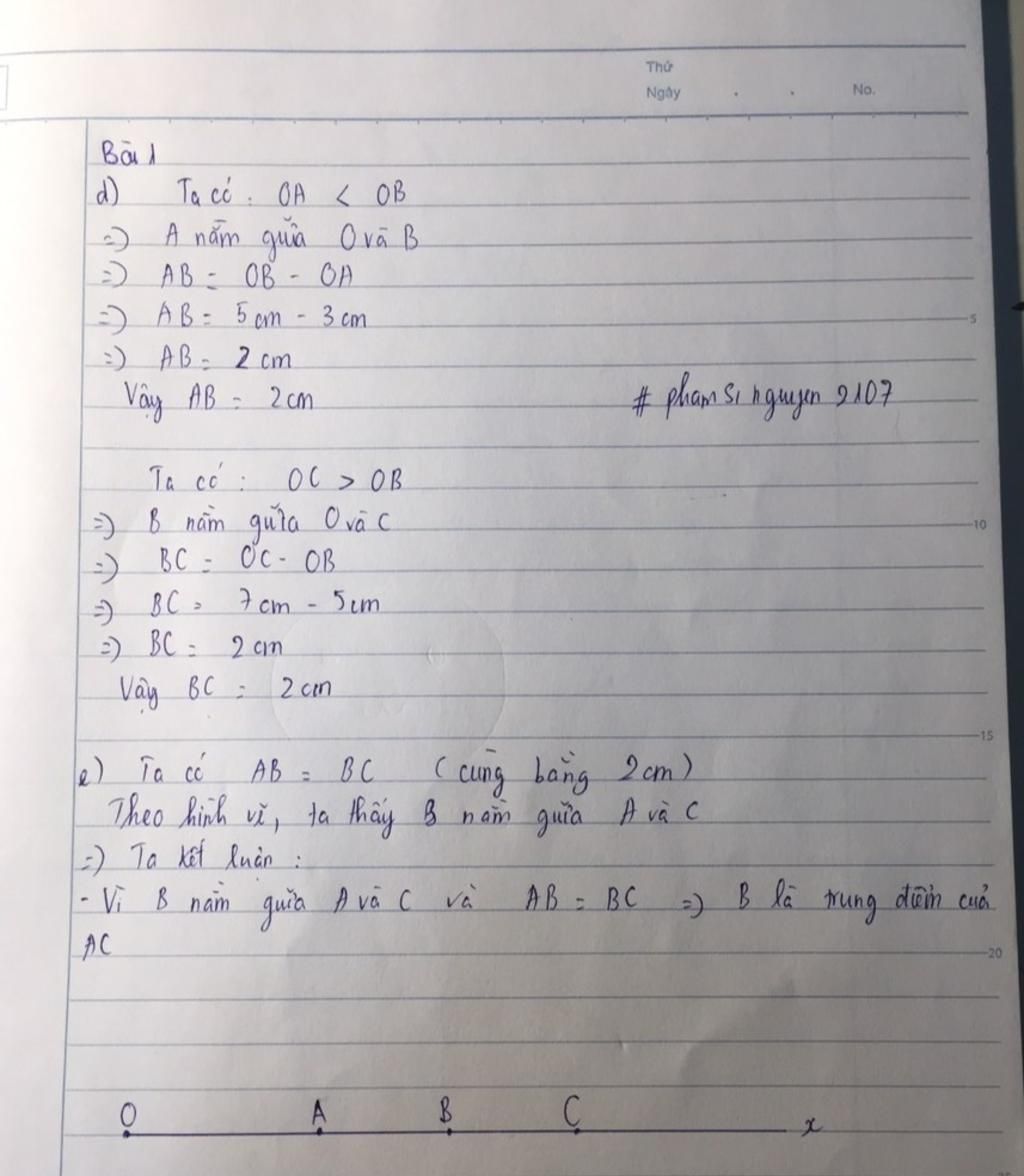 Thứ
Ngày . . No.
Bài 1
d) Ta có : OA < OB
=) A nằm giữa O và B
=) AB = OB - OA
=) AB = 5 cm - 3 cm
5
=) AB = 2 cm
Vậy AB = 2 cm # pham si nguyen 2107
Ta có : OC > OB
=) B nằm giữa O và C
10
=) BC = OC - OB
=) BC = 7 cm - 5 cm
=) BC = 2 cm
Vậy BC = 2 cm
15
e) Ta có AB = BC ( cùng bằng 2 cm )
Theo hình vẽ, ta thấy B nằm giữa A và C
=) Ta kết luận :
- Vì B nằm giữa A và C và AB = BC =) B là trung điểm của
AC
20
O A B C x